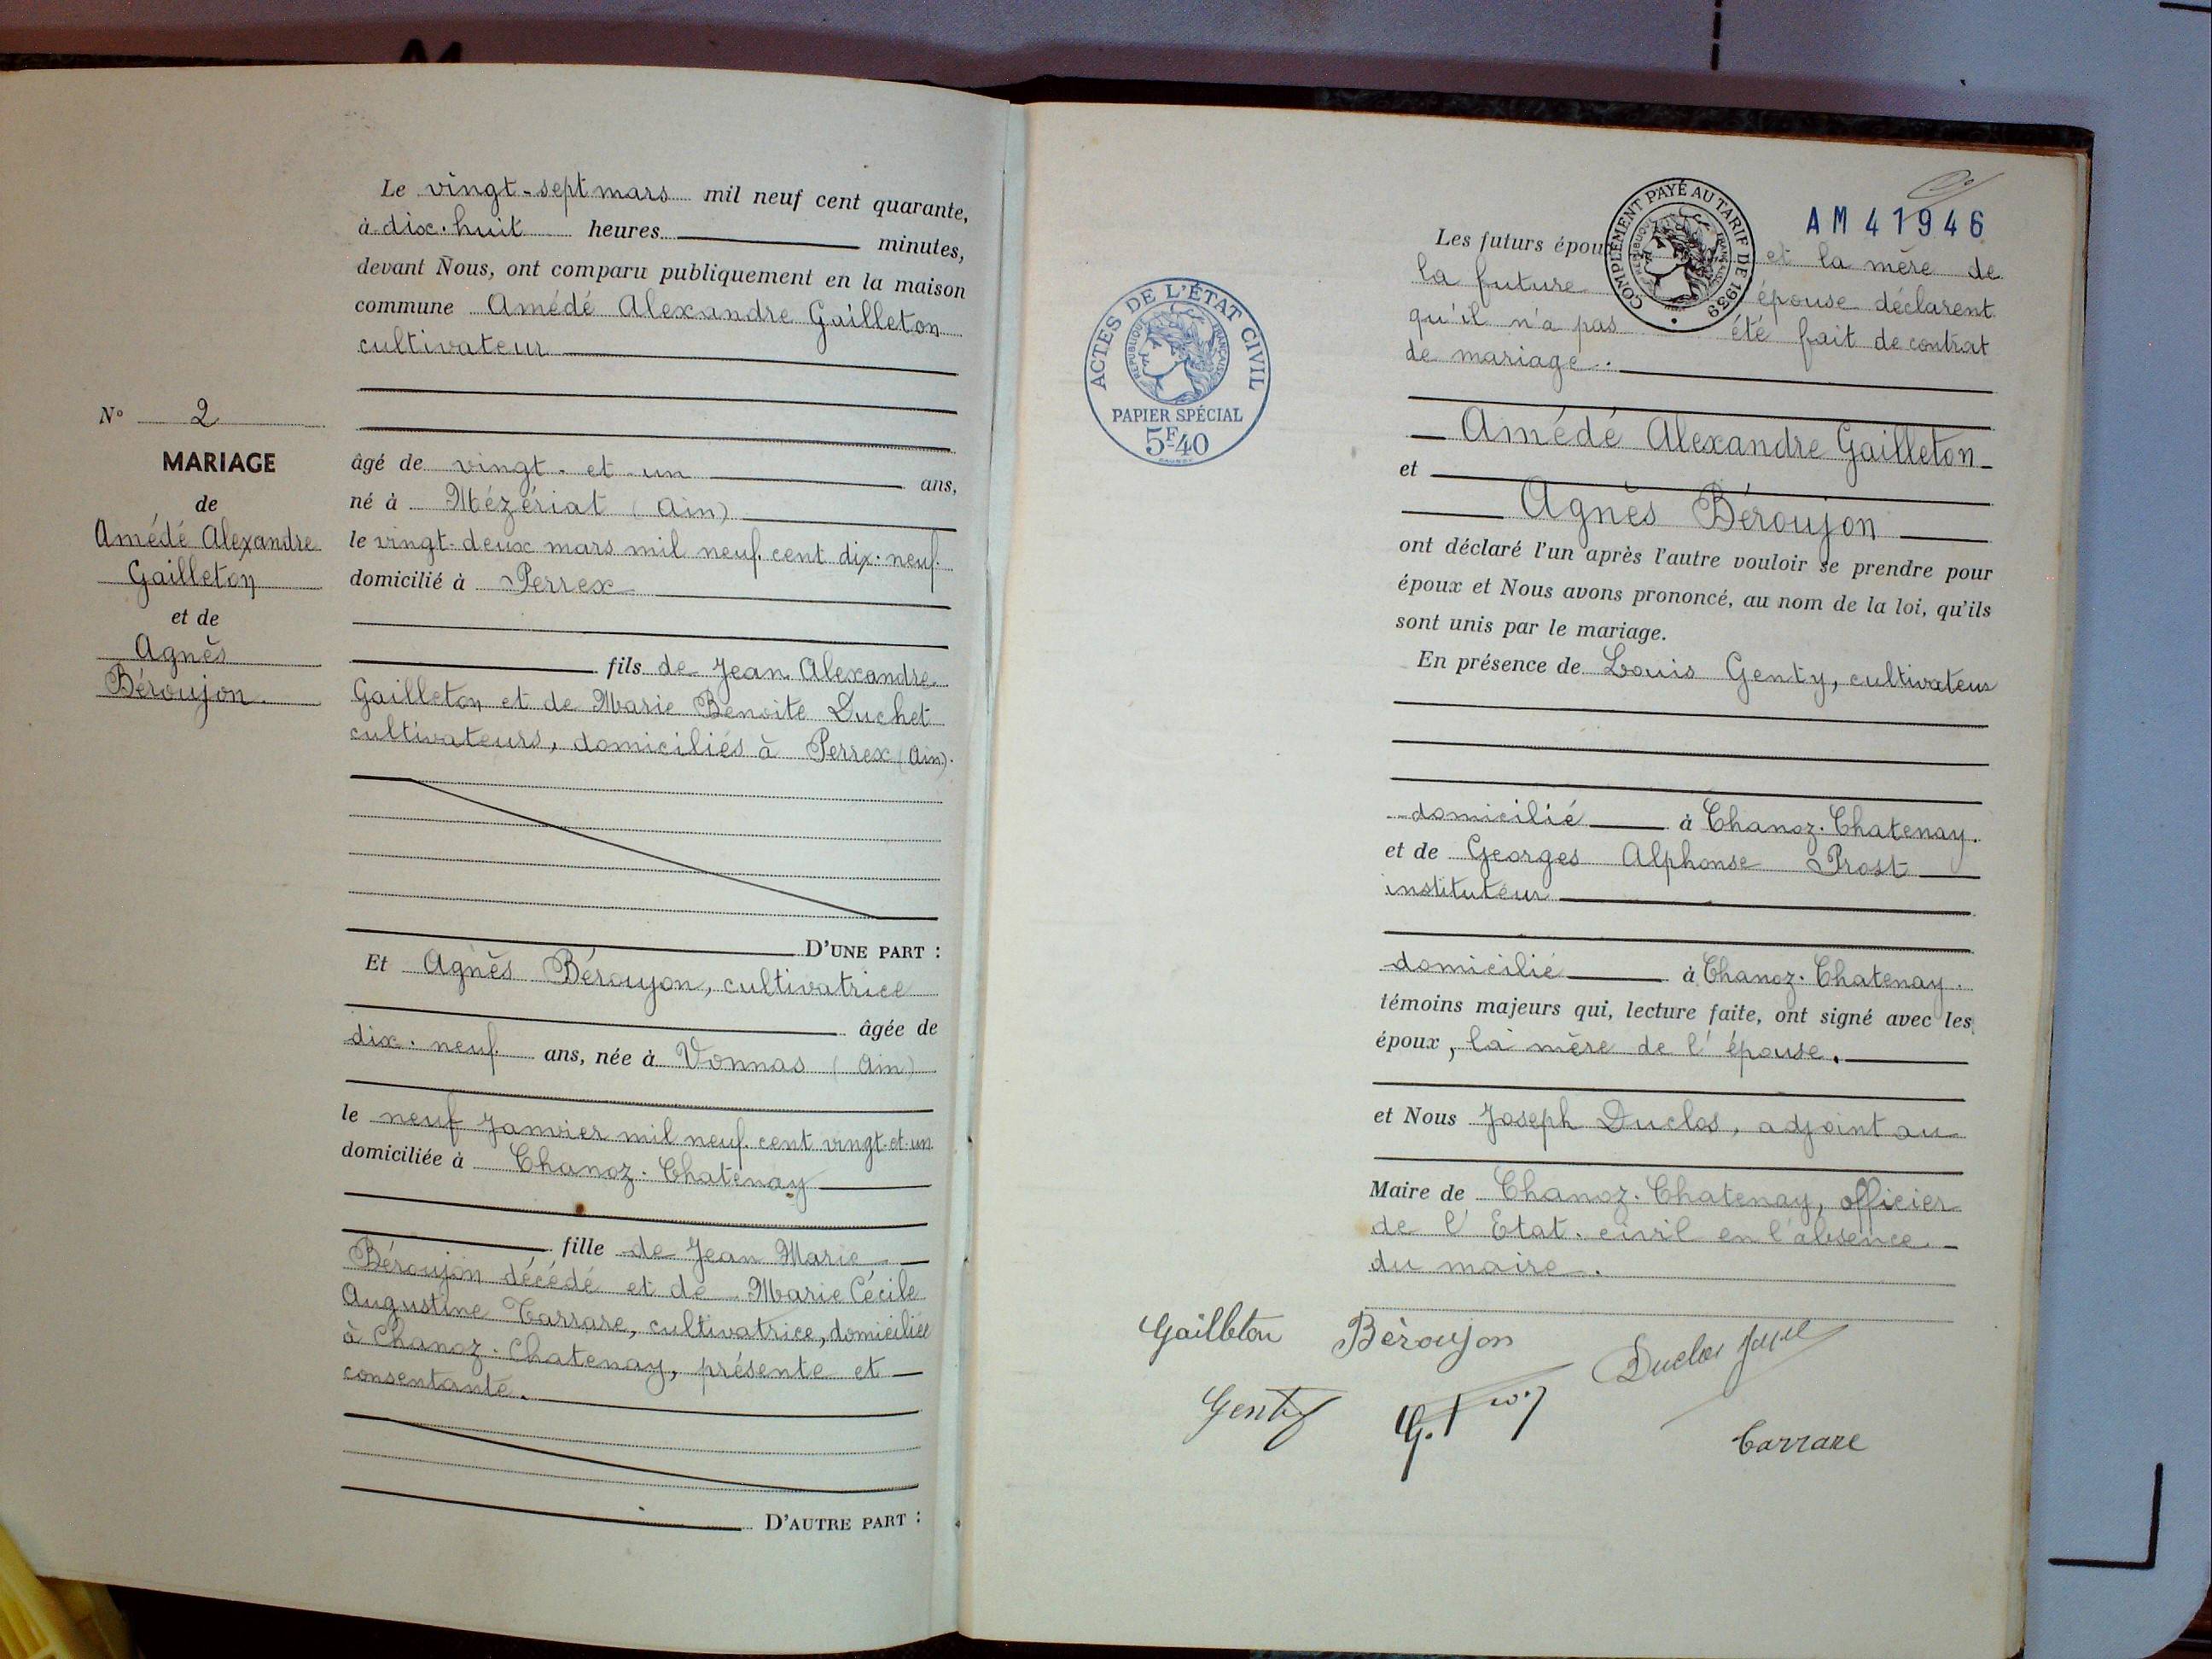 Le vingt-sept mars mil neuf cent quarante,
à dix-huit heures minutes,
devant Nous, ont comparu publiquement en la maison
commune Amédé Alexandre Gailleton
cultivateur
âgé de vingt-et-un ans,
né à Mézériat (Ain)
le vingt-deux mars mil neuf cent dix-neuf
domicilié à Perrex
fils de Jean Alexandre
Gailleton et de Marie Benoite Duchet
cultivateurs, domiciliés à Perrex (Ain).
D'UNE PART :
Et Agnès Béroujon, cultivatrice
âgée de
dix-neuf ans, née à Vonnas (Ain)
le neuf Janvier mil neuf cent vingt-et-un
domiciliée à Chanoz-Chatenay
fille de Jean Marie
Béroujon décédé et de Marie Cécile
Augustine Carrare, cultivatrice, domiciliée
à Chanoz-Chatenay, présente et
consentante.
D'AUTRE PART :
N° 2
MARIAGE
de
Amédé Alexandre
Gailleton
et de
Agnès
Béroujon.
ACTES DE L'ÉTAT CIVIL
RÉPUBLIQUE FRANÇAISE
PAPIER SPÉCIAL
5F40
COMPLÉMENT PAYÉ AU TARIF DE 1939
RÉPUBLIQUE FRANÇAISE
AM 41946
Les futurs épou et la mère de
la future épouse déclarent
qu'il n'a pas été fait de contrat
de mariage.
Amédé Alexandre Gailleton
et
Agnès Béroujon
ont déclaré l'un après l'autre vouloir se prendre pour
époux et Nous avons prononcé, au nom de la loi, qu'ils
sont unis par le mariage.
En présence de Louis Genty, cultivateur
domicilié à Chanoz-Chatenay.
et de Georges Alphonse Prost
instituteur
domicilié à Chanoz-Chatenay.
témoins majeurs qui, lecture faite, ont signé avec les
époux, la mère de l'épouse.
et Nous Joseph Duclos, adjoint au
Maire de Chanoz-Chatenay, officier
de l'Etat-civil en l'absence
du maire.
Gailleton Béroujon Duclos
Genty G. Carrare